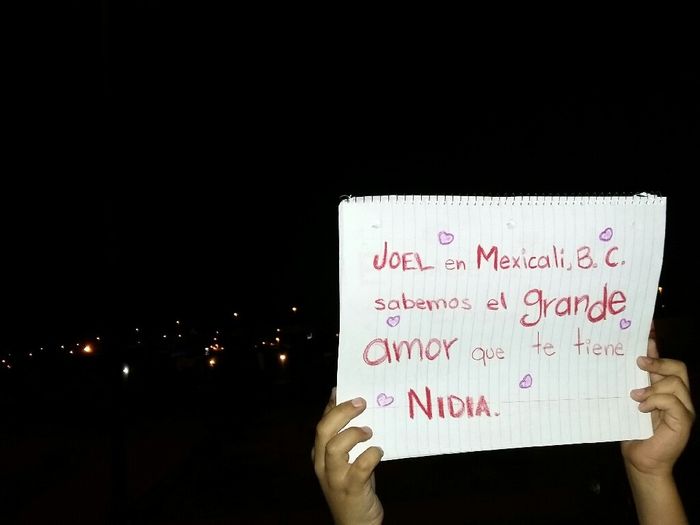 JOEL en Mexicali, B.C.
sabemos el grande
amor que te tiene
NIDIA.